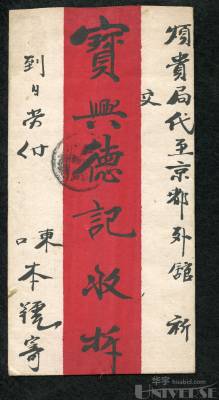 煩貴局代至京都外舘 祈
交
寶興德記收拆
到日勞付
東口本號寄
华宇 hisabid.com
UNIVERSE